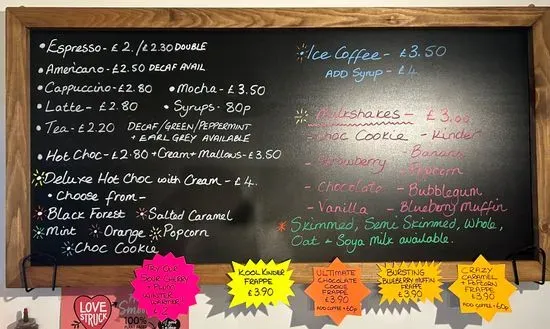 • Espresso - £2. / £2.30 DOUBLE
• Americano - £2.50 DECAF AVAIL
• Cappuccino - £2.80
• Mocha - £3.50
• Latte - £2.80
• Syrups - 80p
• Tea - £2.20 DECAF/GREEN/PEPPERMINT
+ EARL GREY AVAILABLE
• Hot Choc - £2.80 + Cream + Mallows - £3.50
Deluxe Hot Choc with Cream - £4.
• Choose from -
Black Forest
Salted Caramel
Mint
Orange
Popcorn
Choc Cookie
Ice Coffee - £3.50
ADD Syrup - £4
Milkshakes - £3.00
- Choc Cookie - Kinder
- Strawberry - Banana
- Popcorn
- Chocolate - Bubblegum
- Vanilla - Blueberry Muffin
Skimmed, Semi Skimmed, Whole,
Oat & Soya Milk available.
TRY OUR
SOUR CHERRY
+ PLUM
WINTER
£2
KOOL KINDER
FRAPPE
£3.90
ULTIMATE
CHOCOLATE
COOKIE
FRAPPE
£3.90
ADD COFFEE + 60p
BURSTING
BLUEBERRY MUFFIN
FRAPPE
£3.90
CRAZY
CARAMEL
+ POPCORN
FRAPPE
£3.90
ADD COFFEE + 60p
LOVE
STRUCK
100%